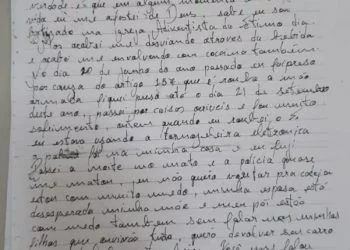 verdade é que em algum momento da
vida eu me afastei de Deus, sabe eu sou
batizado na igreja Adventista do sétimo dia
e acabei me desviando atraves da bebida
e acabei me envolvendo com cocaina também.
No dia 20 de junho do ano passado eu fui preso
por causa do artigo 157 que é roubo a mão
armada fiquei preso até o dia 21 de setembro
deste ano, passei por coisas e foi muito
sofrimento, ontem quando eu
eu estava usando a tornozeleira eletronica
a na minha casa e eu fugi
Passei a noite no mato e a policia quase
me matou, eu não quero voltar pra cadeia
estou com muito medo, minha esposa está
desesperada minha mãe e meu pai estão
com medo tambem sem falar nas minhas
filhas que tudo, quero devolver seu carro